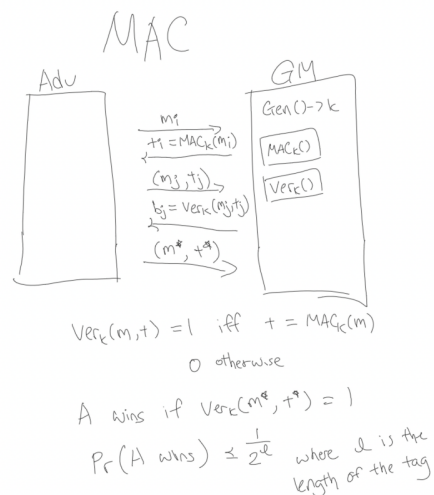 MAC
Adv
GM
Gen()->k
mi
ti = MACk(mi)
MACk()
(mj, tj)
Verk()
bj = Verk(mj, tj)
(m*, t*)
Verk(m, t) = 1 iff t = MACk(m)
0 otherwise
A wins if Verk(m*, t*) = 1
Pr(A wins) ≤ 1/2^l where l is the
length of the tag